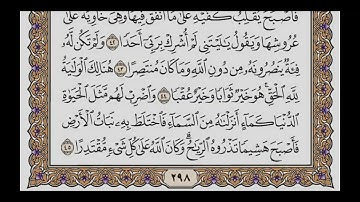 فَأَصْبَحَ يُقَلِّبُ كَفَّيْهِ عَلَىٰ مَآ أَنفَقَ فِيهَا وَهِىَ خَاوِيَةٌ عَلَىٰ
عُرُوشِهَا وَيَقُولُ يَٰلَيْتَنِى لَمْ أُشْرِكْ بِرَبِّىٓ أَحَدًا ٤٢ وَلَمْ تَكُن لَّهُۥ
فِئَةٌ يَنصُرُونَهُۥ مِن دُونِ ٱللَّهِ وَمَا كَانَ مُنتَصِرًا ٤٣ هُنَالِكَ ٱلْوَلَٰيَةُ
لِلَّهِ ٱلْحَقِّ ۚ هُوَ خَيْرٌ ثَوَابًا وَخَيْرٌ عُقْبًا ٤٤ وَٱضْرِبْ لَهُم مَّثَلَ ٱلْحَيَوٰةِ
ٱلدُّنْيَا كَمَآءٍ أَنزَلْنَٰهُ مِنَ ٱلسَّمَآءِ فَٱخْتَلَطَ بِهِۦ نَبَاتُ ٱلْأَرْضِ
فَأَصْبَحَ هَشِيمًا تَذْرُوهُ ٱلرِّيَٰحُ ۗ وَكَانَ ٱللَّهُ عَلَىٰ كُلِّ شَىْءٍ مُّقْتَدِرًا ٤٥
٢٩٨